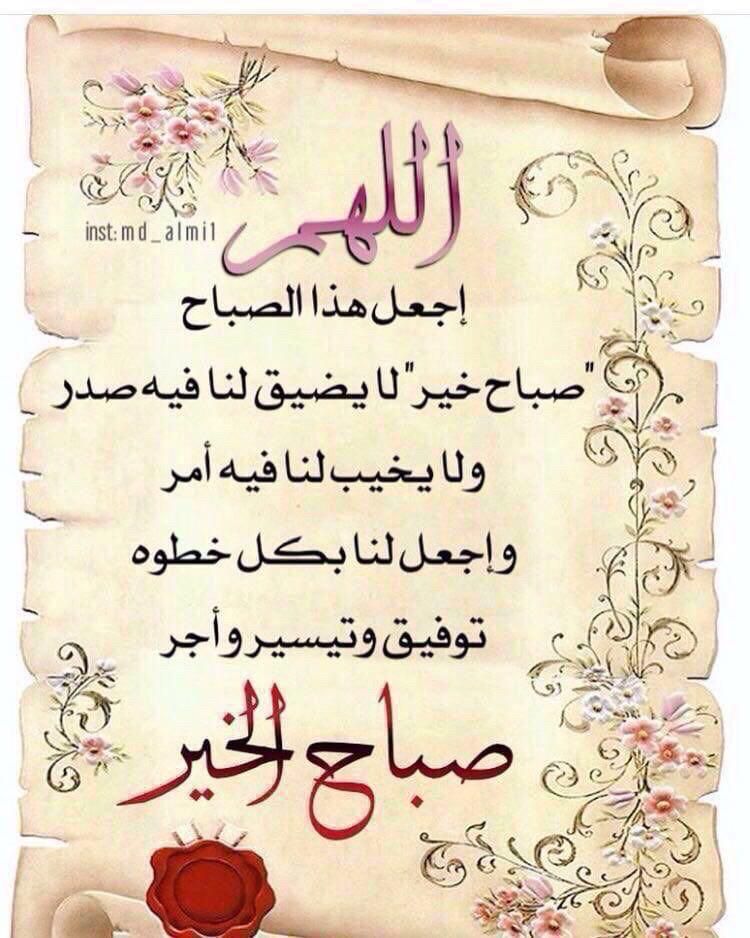 اللهم
inst: md_almi1
إجعل هذا الصباح
"صباح خير" لا يضيق لنا فيه صدر
ولا يخيب لنا فيه أمر
وإجعل لنا بكل خطوه
توفيق وتيسير وأجر
صباح الخير